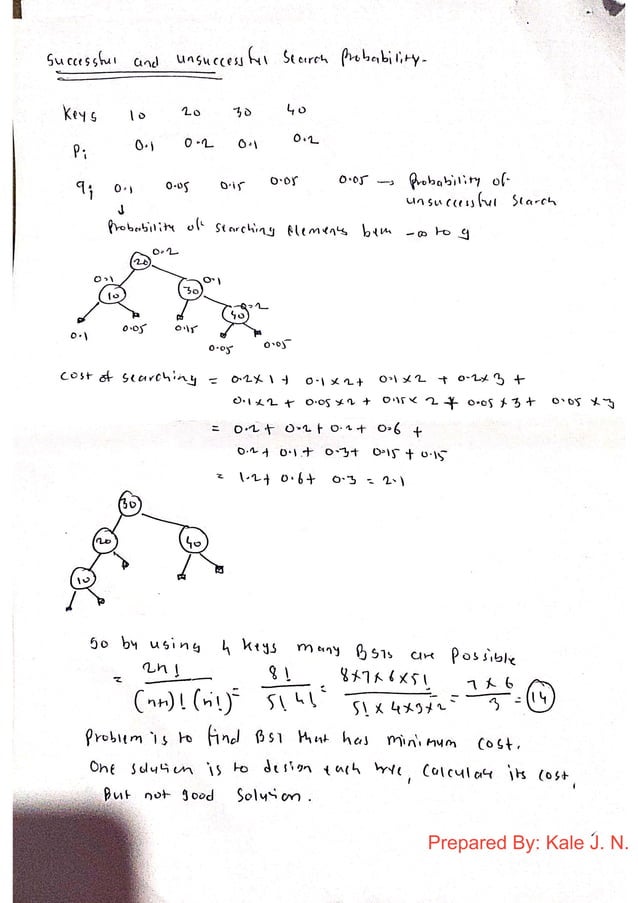 Successful and unsuccessful search Probability.
Keys 10 20 30 40
Pi 0.1 0.2 0.1 0.2
qi 0.1 0.05 0.15 0.05 0.05 → Probability of
unsuccessful search
↓
Probability of searching elements betn -∞ to 9
0.2
20
0.1 0.1
10 30 0.2
40
0.1 0.05 0.15
0.05 0.05
cost of searching = 0.2×1 + 0.1×2 + 0.1×2 + 0.2×3 +
0.1×2 + 0.05×2 + 0.15×2 + 0.05×3 + 0.05×3
= 0.2 + 0.2 + 0.2 + 0.6 +
0.2 + 0.1 + 0.3 + 0.15 + 0.15
= 1.2 + 0.6 + 0.3 = 2.1
30
20 40
10
So by using 4 keys many BSTs are possible
= 2n! / (n+1)! (n!) = 8! / 5! 4! = 8×7×6×5! / 5! × 4×3×2 = 7×6 / 3 = 14
Problem is to find BST that has minimum cost.
One solution is to design each tree, calculate its cost,
But not good solution.
Prepared By: Kale J. N.